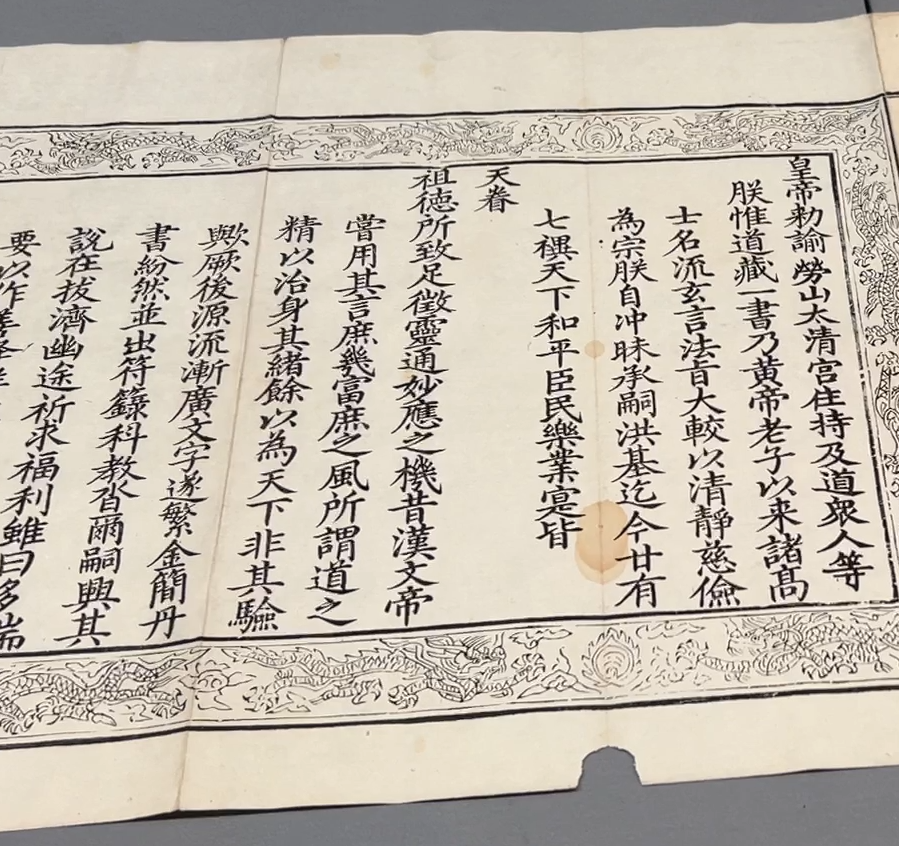 皇帝勅諭勞山太清宮住持及道眾人等
朕惟道藏一書乃黃帝老子以来諸髙
士名流玄言法旨大較以清靜慈儉
為宗朕自冲昧承嗣洪基迄今廿有
七禩天下和平臣民樂業寔皆
天眷
祖德所致足徵靈通妙應之機昔漢文帝
嘗用其言庶幾富庶之風所謂道之
精以治身其緒餘以為天下非其驗
歟厥後源流漸廣文字遂繁金簡丹
書紛然並出符籙科教沓爾嗣興其
說在拔濟幽途祈求福利雖曰多端
要以作善